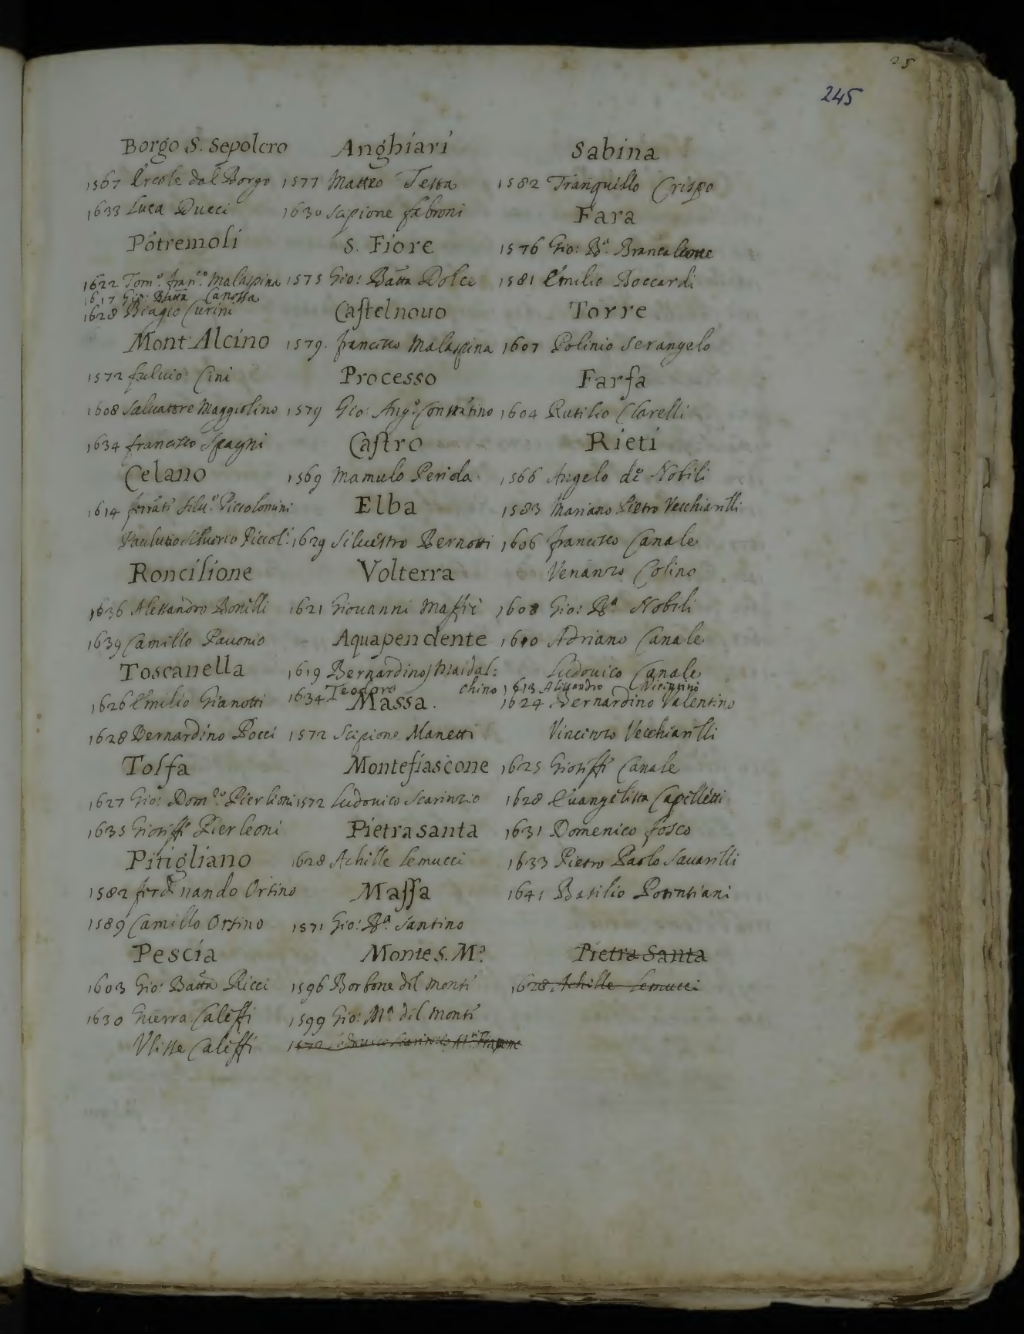 245
Borgo S. Sepolcro
1567 Ercole dal Borgo
1633 Luca Ducci
Pótremoli
1622 Tom.º fran.co Malaspina
1617 Gio: Batta Canossa
1628 Biagio Curini
Mont'Alcino
1572 fuluio Cini
1608 Saluatore Maggiolino
1634 francesco Spagni
Celano
1614 Silu.º Piccolomini
Siluerio Piccol:
Roncilione
1636 Alessandro Bonelli
1639 Camillo Pauonio
Toscanella
1626 Emilio Gianotti
1628 Bernardino Pocci
Tolfa
1627 Gio: Dom.co Pierleoni
1635 Gioseffe Pierleoni
Pitigliano
1582 ferdinando Orsino
1589 Camillo Orsino
Pescia
1603 Gio: Batta Ricci
1630 Guerra Caleffi
Vlisse Caleffi
Anghiari
1577 Matteo Testa
1630 Scipione fabroni
S. Fiore
1575 Gio: Batta Dolce
Castelnouo
1579. francesco Malaspina
Processo
1579 Gio: Ang.º Constátino
Castro
1569 Mamulo Perida
Elba
1629 Siluestro Bernotti
Volterra
1621 Giouanni Maffei
Aquapendente
1619 Bernardino Maidal:
chino
1634 Teodoro
Massa.
1572 Scipione Manetti
Montefiascone
1572 Ludouico Scarinzio
Pietrasanta
1628 Achille Lemucci
Massa
1571 Gio: Bª Santino
Monte S. Mª
1596 Borbone del Monte
1599 Gio: Mª del Monte
Sabina
1582 Tranquillo Crispo
Fara
1576 Gio: Bª Brancaleone
1581 Emilio Boccardi
Torre
1607 Polinio Serangelo
Farfa
1604 Rutilio Clarelli
Rieti
1566 Angelo de Nobili
1583 Mariano Pietro Vecchiarelli
1606 francesco Canale
Venanzo Colino
1608 Gio: Bª Nobili
1610 Adriano Canale
Ludouico Canale
1613 Alessandro Vicentino
1624 Bernardino Valentino
Vincenzo Vecchiarelli
1625 Gioseffe Canale
1628 Euangelista Capelletti
1631 Domenico fosco
1633 Pietro Paolo Sauarelli
1641 Basilio Potentiani
Pietra Santa
1628. Achille Lemucci